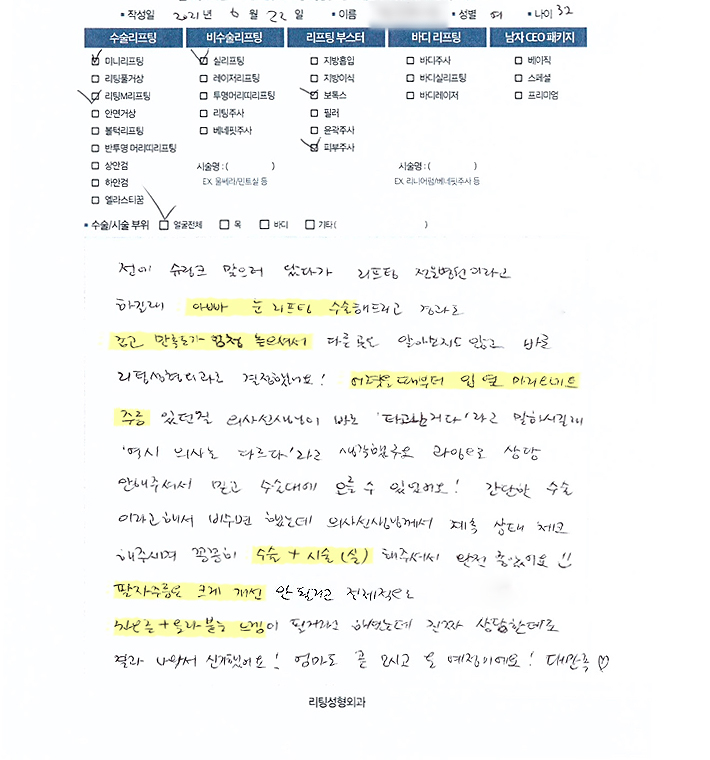 작성일 2021년 6월 22일 이름 성별 여 나이 32
수술리프팅 비수술리프팅 리프팅 부스터 바디 리프팅 남자 CEO 패키지
미니리프팅 실리프팅 지방흡입 바디주사 베이직
리팅풀거상 레이저리프팅 지방이식 바디실리프팅 스페셜
리팅M리프팅 투명머리띠리프팅 보톡스 바디레이저 프리미엄
안면거상 리팅주사 필러
볼턱리프팅 베네핏주사 윤곽주사
반투명 머리띠리프팅 피부주사
상안검 시술명 : ( ) 시술명 : ( )
하안검 EX. 울쎄라/민트실 등 EX. 리니어펌/베네핏주사 등
엘라스티꿈
수술/시술 부위 얼굴전체 목 바디 기타( )
전에 슈링크 맞으러 왔다가 리프팅 전문병원이라고
하길래 아빠 눈 리프팅 수술해드리고 경과도
좋고 만족도가 엄청 높으셔서 다른 곳은 알아보지도 않고 바로
리팅성형외과로 결정했어요! 어렸을때부터 입 옆 마리오네트
주름 있던걸 의사선생님이 바로 '타고난거다' 라고 말하시길래
'역시 의사는 다르다' 라고 생각했구요 과잉으로 상담
안해주셔서 믿고 수술대에 오를 수 있었어요! 간단한 수술
이라고 해서 비수면 했는데 의사선생님께서 계속 상태 체크
해주시며 꼼꼼히 수술 + 시술 (실) 해주셔서 완전 좋았어요 !!
팔자주름은 크게 개선 안 될거고 전체적으로
심은 + 올라붙는 느낌이 될거라고 해셨는데 진짜 상담한대로
결과 나와서 신기했어요! 엄마도 곧 모시고 올 예정이에요! 대만족♡
리팅성형외과